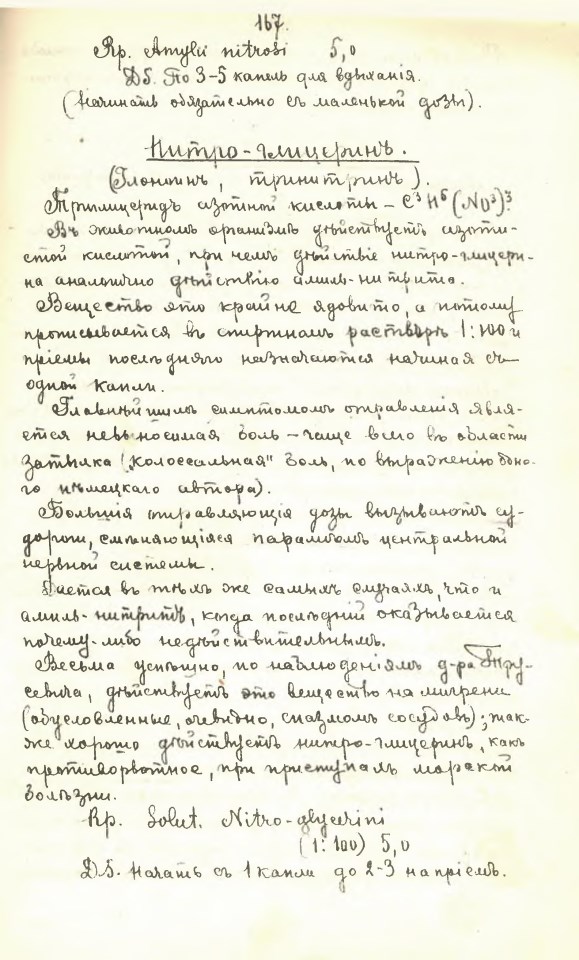 167.
Rp. Amylii nitrosi 5,0
DS. По 3-5 капель для вдыханiя.
(Начинать обязательно съ маленькой дозы).
Нитро-глицеринъ.
(Глоноинъ, тринитринъ).
Триглицеридъ азотной кислоты - C³H⁵(NO³)³.
Въ животномъ организмѣ дѣйствуетъ азоти-
стой кислотой, при чемъ дѣйствiе нитро-глицери-
на аналогично дѣйствiю амиль-нитрита.
Вещество это крайне ядовито, а потому
прописывается въ спиртномъ растворѣ 1:100 и
прiемы послѣдняго назначаются начиная съ
одной капли.
Главнѣйшимъ симптомомъ отравленiя явля-
ется невыносимая боль - чаще всего въ области
затылка („колоссальная" боль, по выраженiю одно-
го нѣмецкаго автора).
Большiя отравляющiя дозы вызываютъ су-
дороги, смѣняющiяся параличомъ центральной
нервной системы.
Дается въ тѣхъ же самыхъ случаяхъ, что и
амиль-нитритъ, когда послѣднiй оказывается
почему-либо недѣйствительнымъ.
Весьма успѣшно, по наблюденiямъ д-ра Тру-
севича, дѣйствуетъ это вещество на мигрени
(обусловленные, очевидно, спазмомъ сосудовъ); так-
же хорошо дѣйствуетъ нитро-глицеринъ, какъ
противорвотное, при приступахъ морской
болѣзни.
Rp. Solut. Nitro-glycerini
(1:100) 5,0
DS. Начать съ 1 капли до 2-3 на прiемъ.